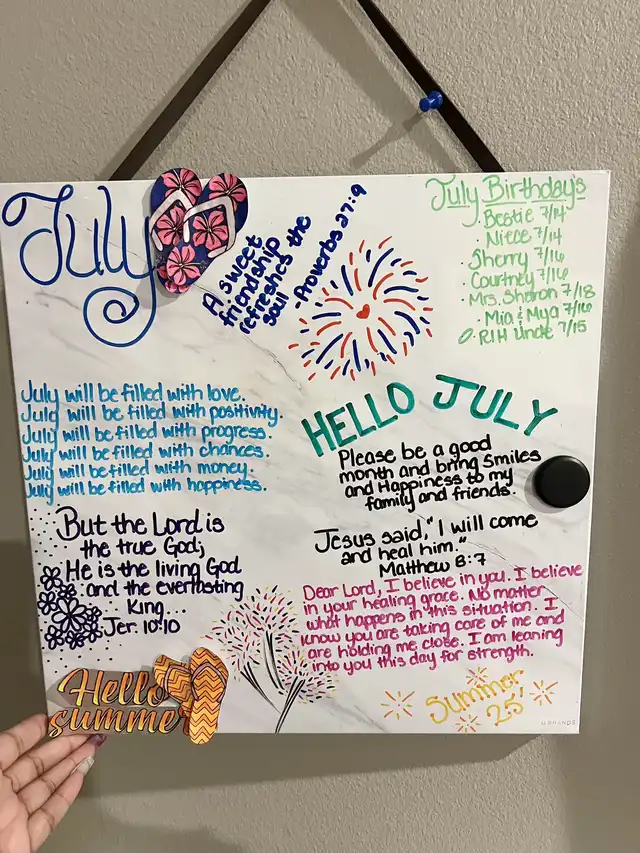 July
A sweet
friendship
refreshes the
soul
-Proverbs 27:9
July Birthday's
· Bestie 7/14
· Niece 7/14
· Sherry 7/16
· Courtney 7/16
· Mrs. Sharon 7/18
· Mia & Mya 7/16
RIH Uncle 7/15
July will be filled with love.
July will be filled with positivity.
July will be filled with progress.
July will be filled with chances.
July will be filled with money.
July will be filled with happiness.
HELLO JULY
Please be a good
month and bring Smiles
and Happiness to my
family and friends.
But the Lord is
the true God;
He is the living God
and the everlasting
King...
Jer. 10:10
Jesus said, "I will come
and heal him."
Matthew 8:7
Dear Lord, I believe in you. I believe
in your healing grace. No matter
what happens in this situation. I
know you are taking care of me and
are holding me close. I am leaning
into you this day for strength.
Hello
summer
Summer
25'
U BRANDS